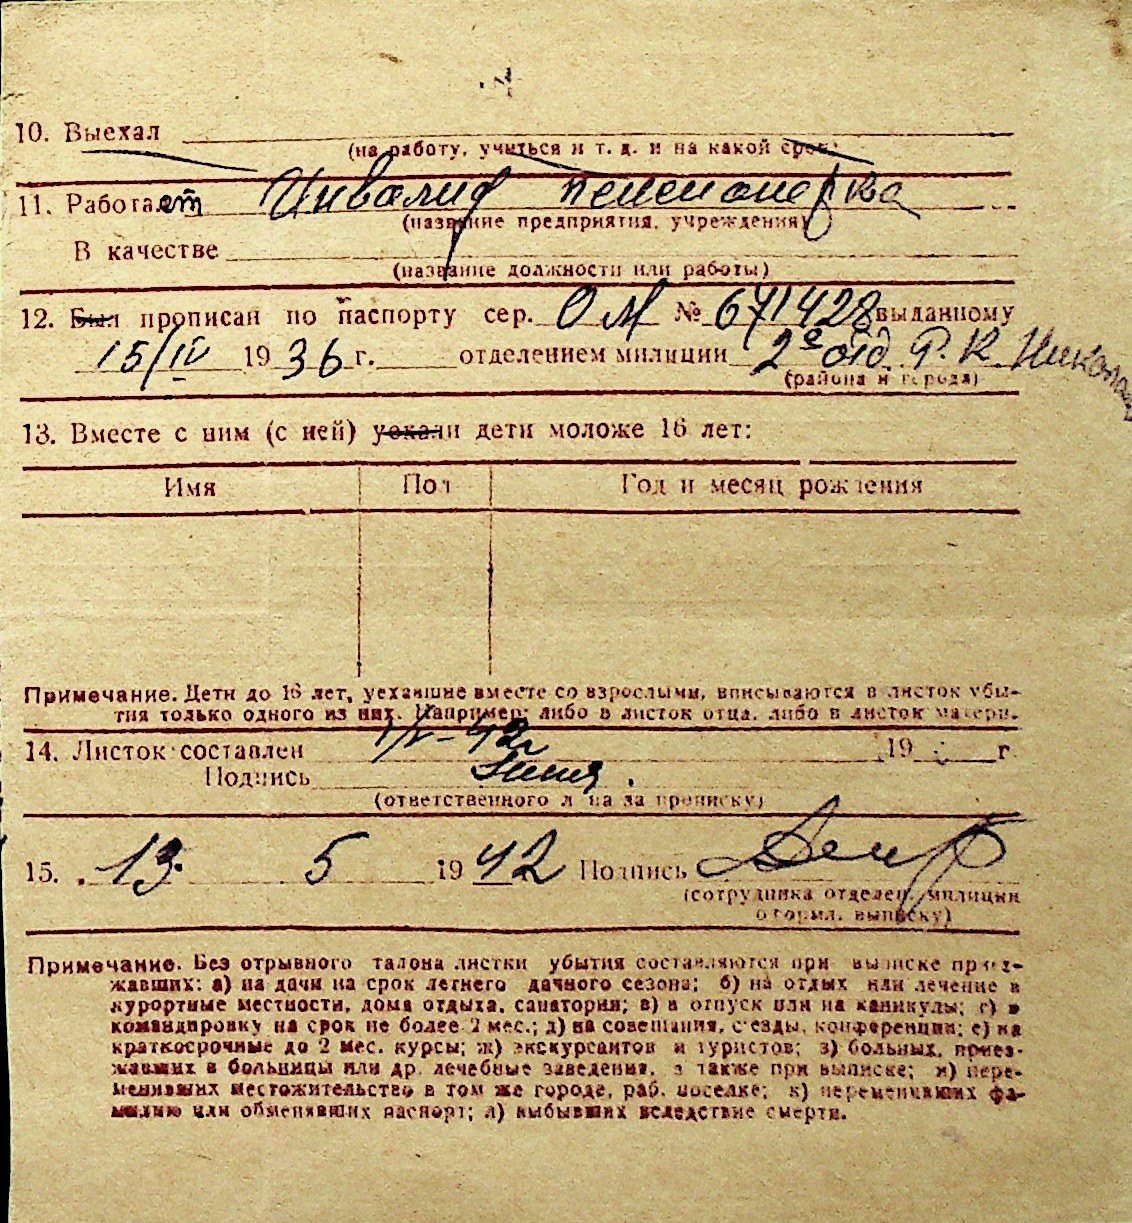 10. Выехал
(на работу, учиться и т. д. и на какой срок)
11. Работает Инвалид пенсионерка
(название предприятия, учреждения)
В качестве
(название должности или работы)
12. Был прописан по паспорту сер. ОМ № 671428 выданному
15/IV 1936 г. отделением милиции 2е отд. Р. К.
(района и города)
13. Вместе с ним (с ней) уехали дети моложе 16 лет:
Имя Пол Год и месяц рождения
Примечание. Дети до 16 лет, уехавшие вместе со взрослыми, вписываются в листок убы-
тия только одного из них. Например: либо в листок отца, либо в листок матери.
14. Листок составлен 1/V-42г 19 г.
Подпись
(ответственного лица за прописку)
15. 13 5 1942 Подпись
(сотрудника отделен. милиции
оформл. выписку)
Примечание. Без отрывного талона листки убытия составляются при выписке приез-
жавших: а) на дачи на срок летнего дачного сезона; б) на отдых или лечение в
курортные местности, дома отдыха, санатории; в) в отпуск или на каникулы; г) в
командировку на срок не более 2 мес.; д) на совещания, съезды, конференции; е) на
краткосрочные до 2 мес. курсы; ж) экскурсантов и туристов; з) больных, приез-
жавших в больницы или др. лечебные заведения, а также при выписке; и) пере-
менивших местожительство в том же городе, раб. поселке; к) переменивших фа-
милию или обменявших паспорт; л) выбывших вследствие смерти.